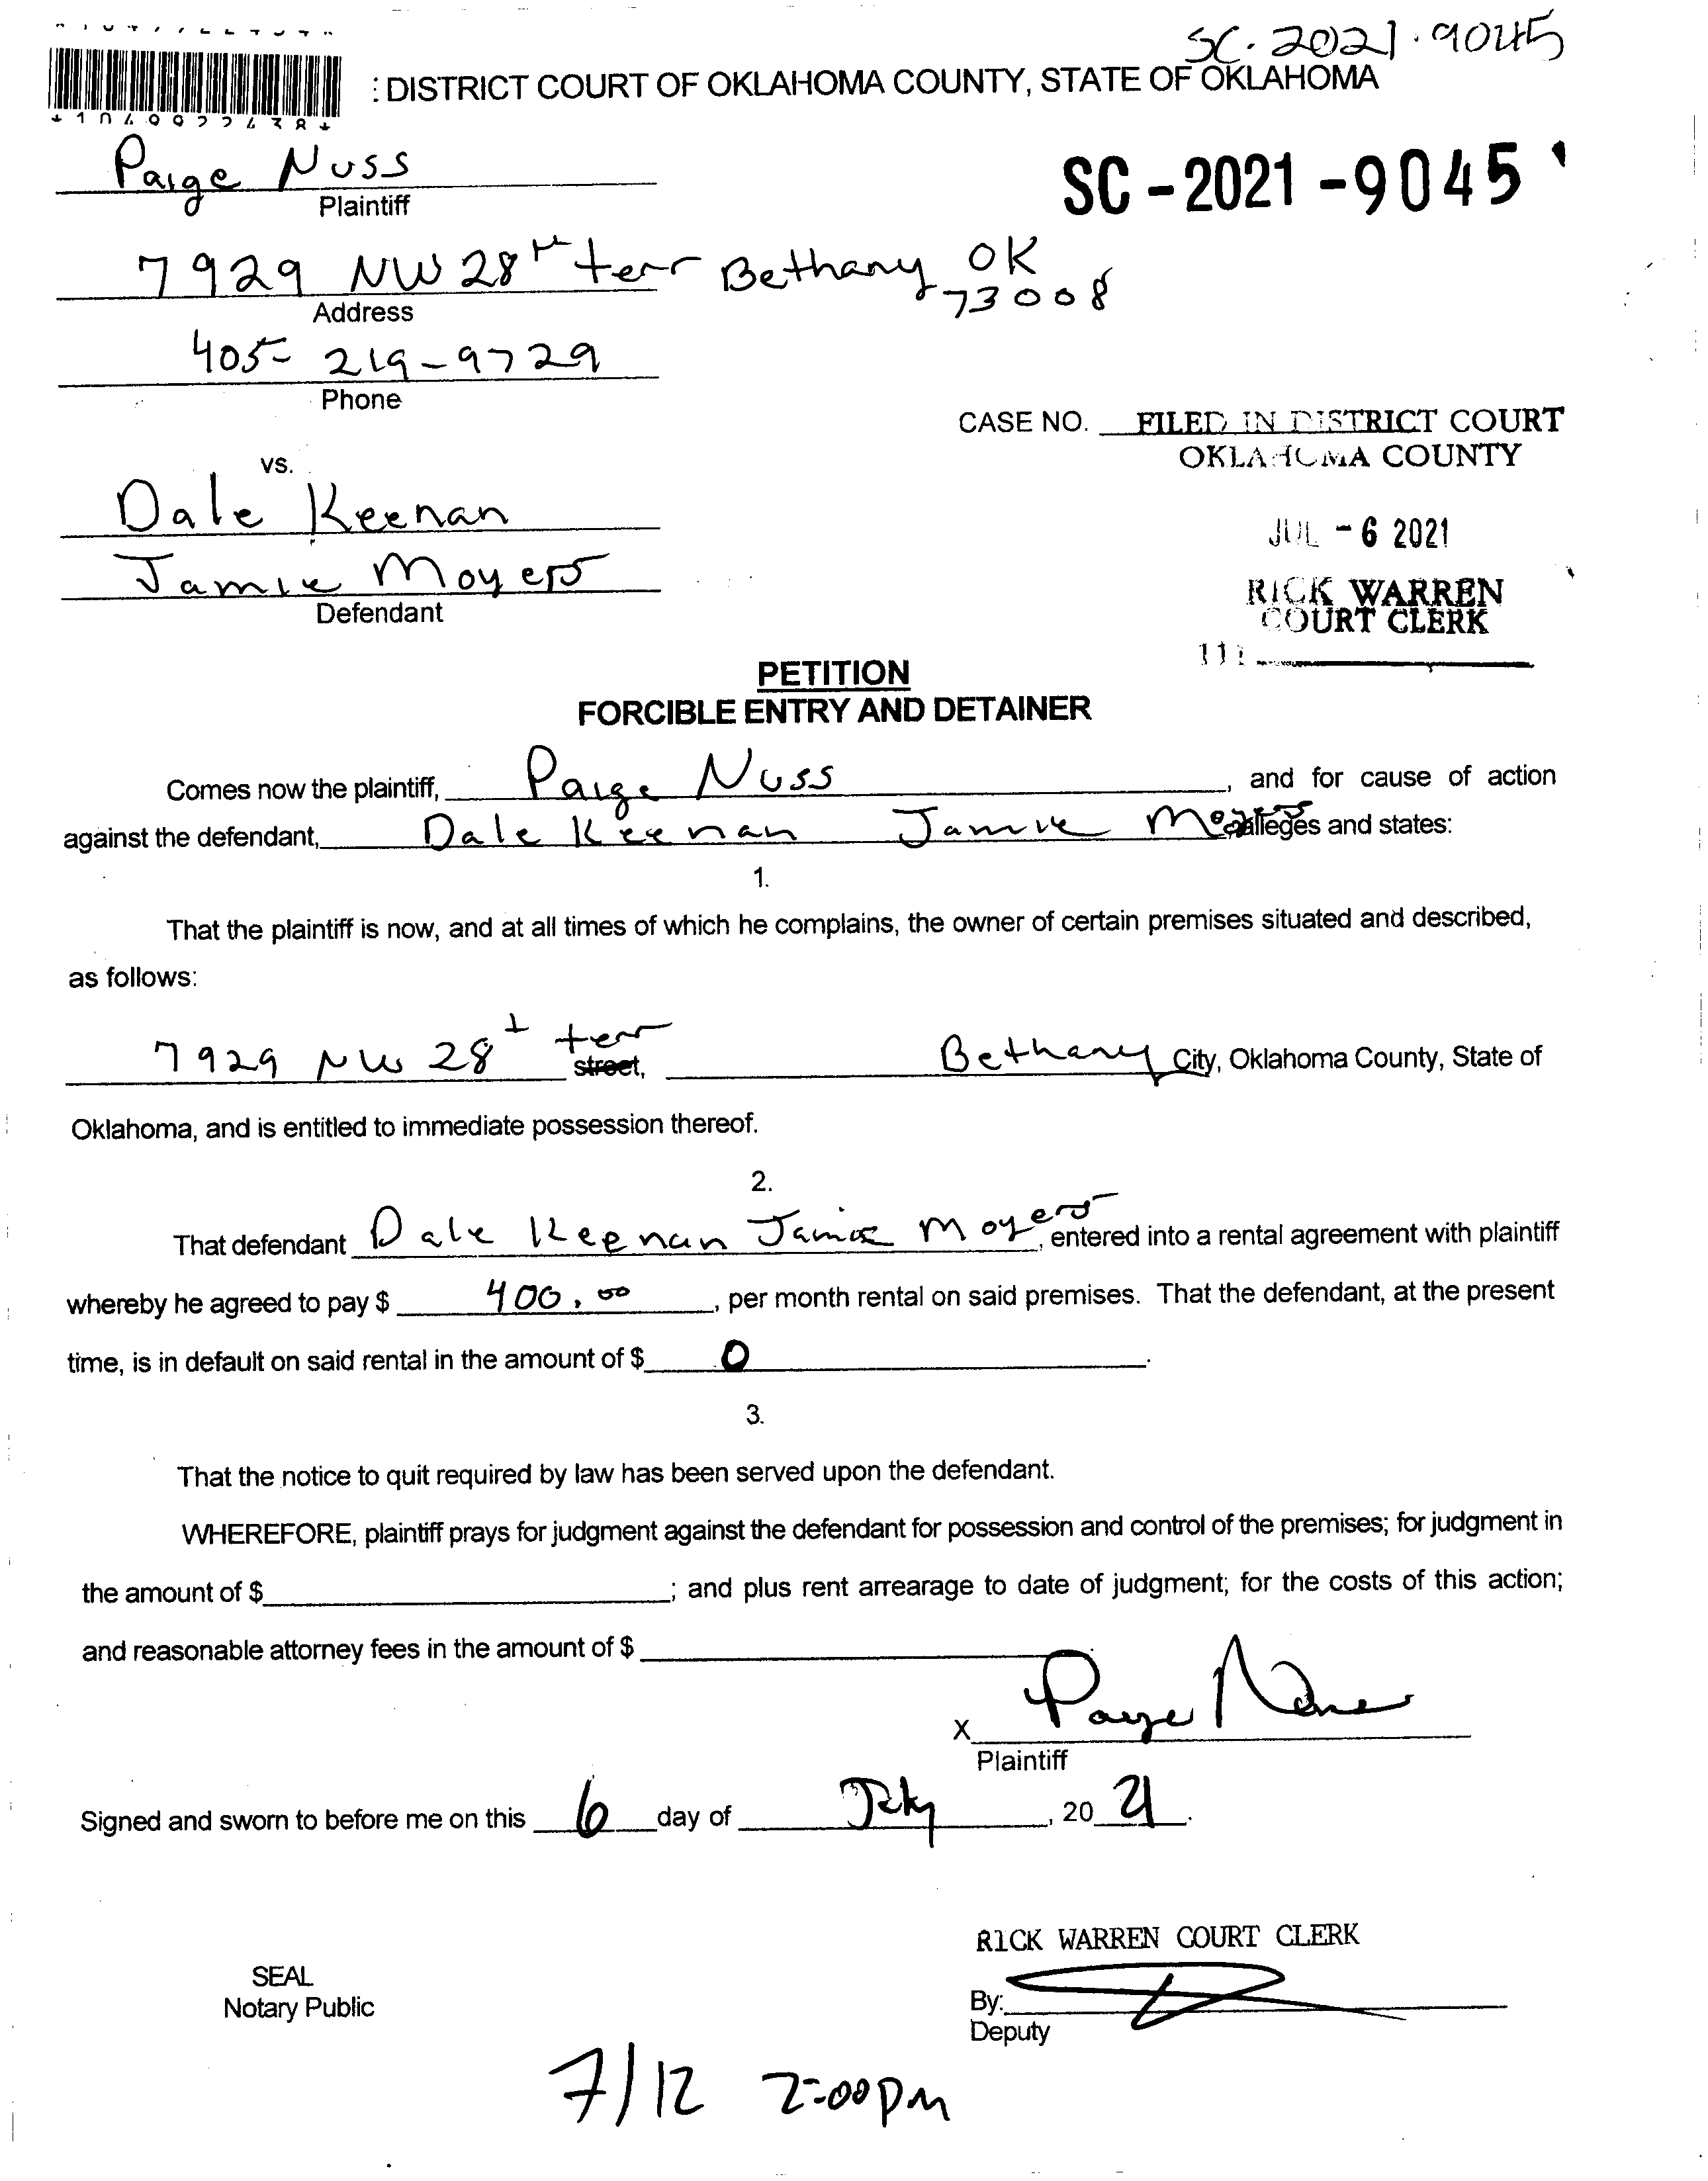 SC-2021-9045
: DISTRICT COURT OF OKLAHOMA COUNTY, STATE OF OKLAHOMA
Paige Nuss
Plaintiff
SC-2021-9045
7929 NW 28th terr Bethany OK
73008
Address
405-219-9729
Phone
CASE NO. FILED IN DISTRICT COURT
OKLAHOMA COUNTY
vs.
Dale Keenan
JUL - 6 2021
Jamie Moyers
Defendant
RICK WARREN
COURT CLERK
PETITION
FORCIBLE ENTRY AND DETAINER
Comes now the plaintiff, Paige Nuss, and for cause of action
against the defendant, Dale Keenan Jamie Moyers alleges and states:
1.
That the plaintiff is now, and at all times of which he complains, the owner of certain premises situated and described,
as follows:
7929 NW 28 terr street, Bethany City, Oklahoma County, State of
Oklahoma, and is entitled to immediate possession thereof.
2.
That defendant Dale Keenan Jamie Moyers, entered into a rental agreement with plaintiff
whereby he agreed to pay $ 400.00, per month rental on said premises. That the defendant, at the present
time, is in default on said rental in the amount of $ 0.
3.
That the notice to quit required by law has been served upon the defendant.
WHEREFORE, plaintiff prays for judgment against the defendant for possession and control of the premises; for judgment in
the amount of $ ; and plus rent arrearage to date of judgment; for the costs of this action;
and reasonable attorney fees in the amount of $
X Paige Nuss
Plaintiff
Signed and sworn to before me on this 6 day of July, 2021.
RICK WARREN COURT CLERK
SEAL
Notary Public
By:
Deputy
7/12 2:00pm